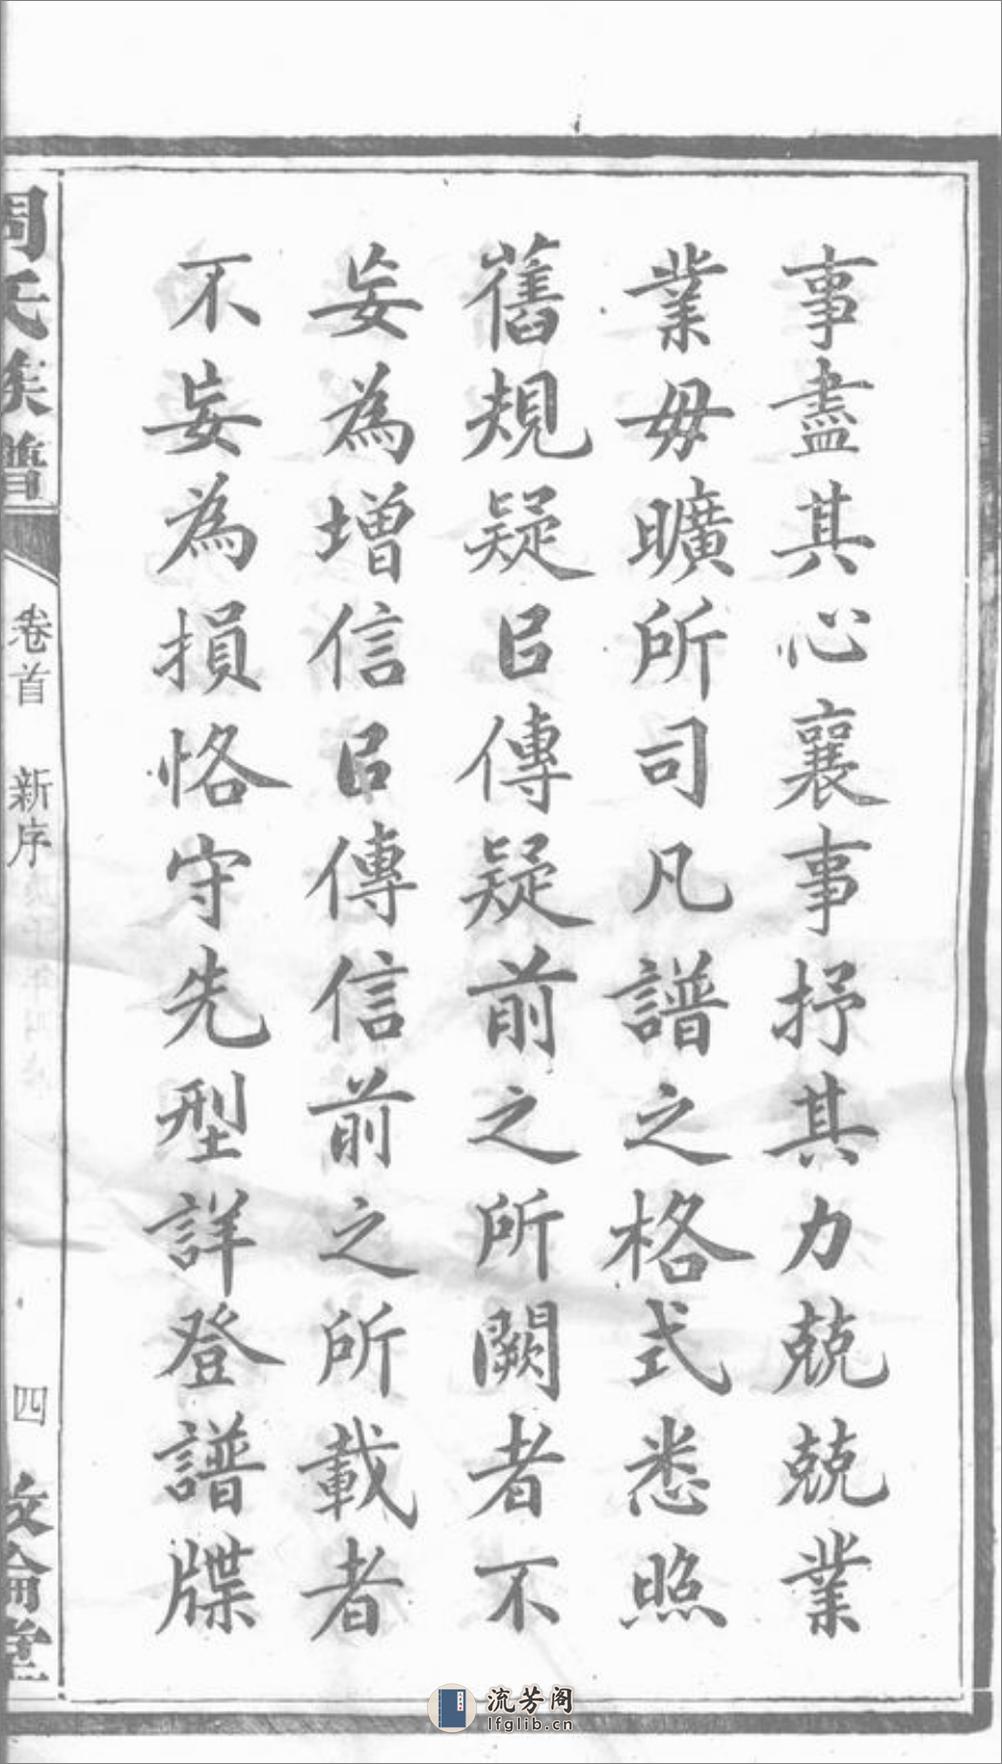 事盡其心襄事抒其力兢兢業
業毋曠所司凡譜之格式悉照
舊規疑㠯傳疑前之所闕者不
妄為增信㠯傳信前之所載者
不妄為損恪守先型詳登譜牒
周氏族譜
卷首 新序
四
敦倫堂
流芳阁
lfglib.cn